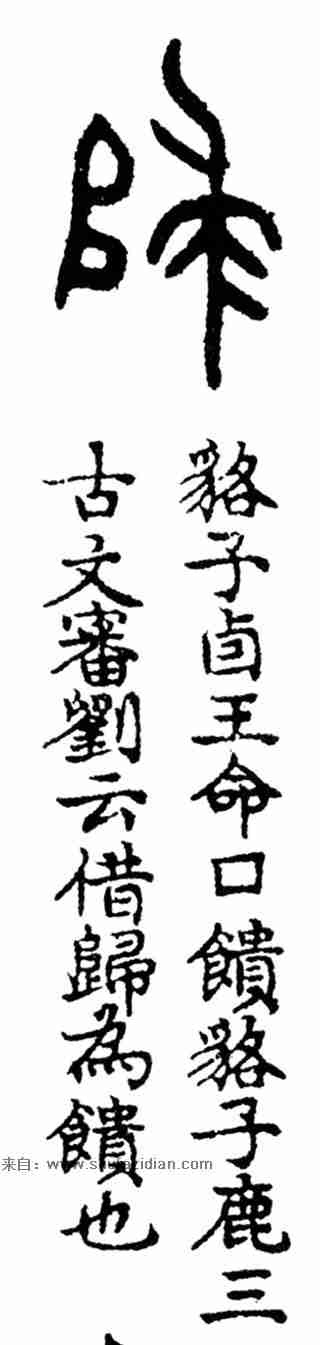 貉子卣王命口饋貉子鹿三
古文審劉云借歸為饋也
来自：www.shufazidian.com